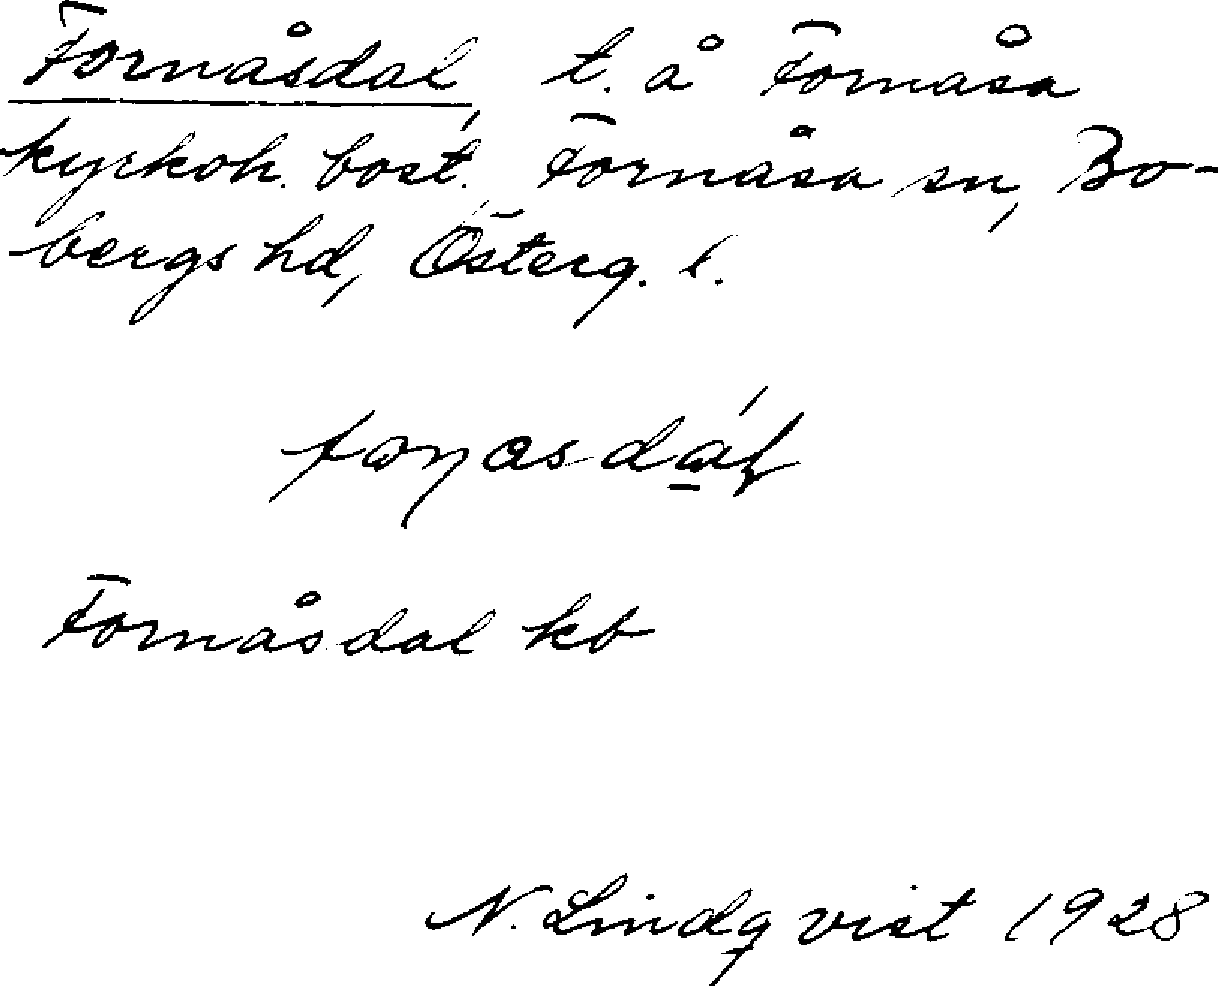 Fornåsdal, t. å Fornåsa
kyrkoh. bost., Fornåsa sn, Bo-
bergs hd, Österg. l.
Fornåsdal kb
N. Lindqvist 1928